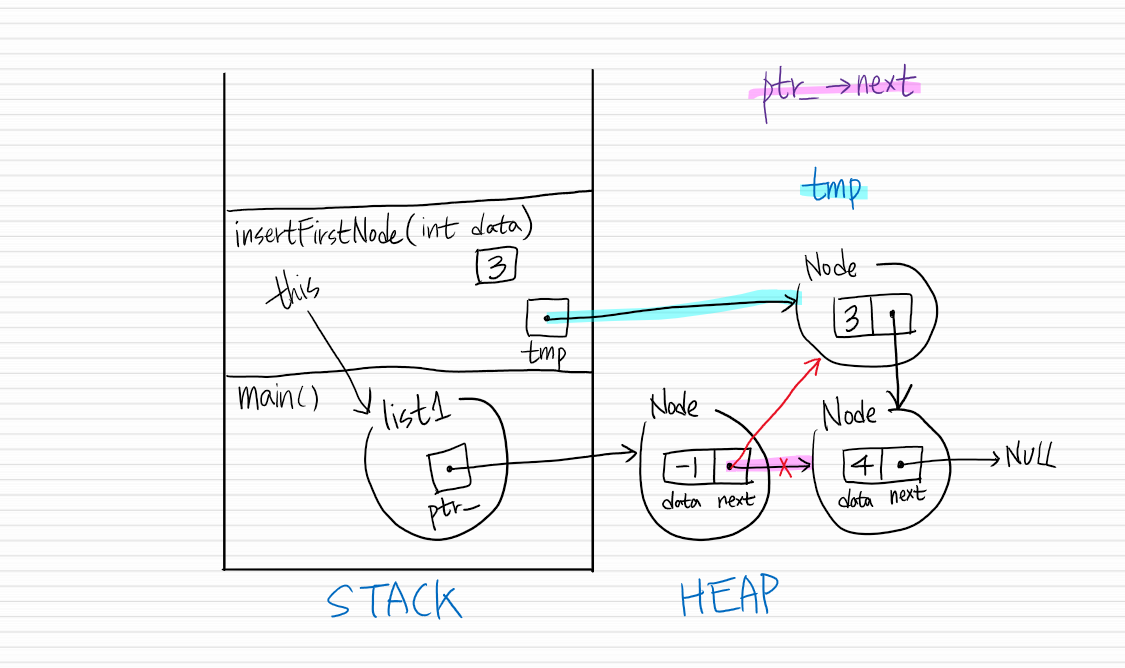 ptr_ → next
tmp
insertFirstNode(int data)
3
this
tmp
Node
3
main()
list1
ptr_
Node
-1
data next
X
Node
4
data next
NULL
STACK
HEAP